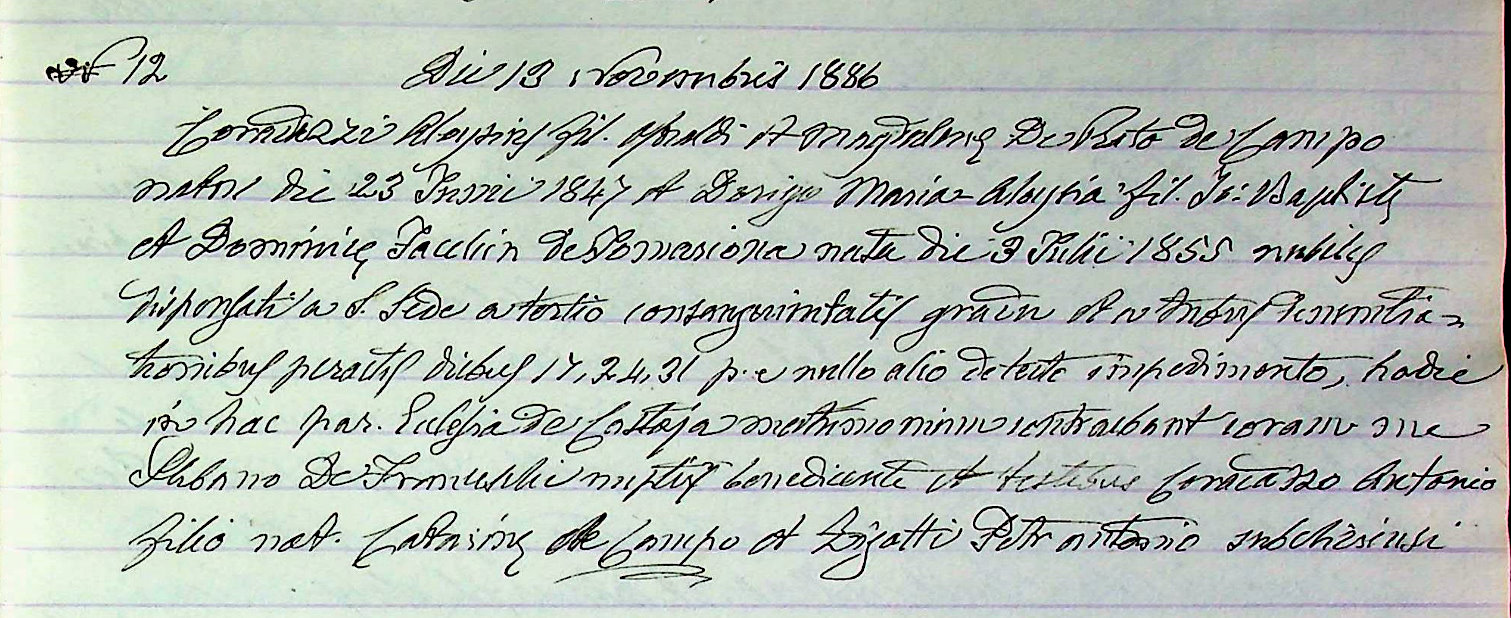 N 12 Die 13 Novembris 1886
Coradazzi Aloysius fil. Osvaldi et Magdalenę De Prato de Campo
natus die 23 Junii 1847 et Dorigo Maria-Aloysia fil. Jo: Baptistę
et Dominicę Facchin de Tomariona nata die 3 Julii 1855 nubiles
dispensati a S. Sede a tertio consanguinitatis gradu et a denuntia=
tionibus peractis diebus 17, 24, 31 p. e nullo alio detecto impedimento, hodie
in hac par. Eclesia de Castoja matrimonium contraebant coram me
Plebano De Franceschi nuptis benedicente et testibus Coradazzo Antonio
filio nat. Catarinę de Campo et Zigotti Petro Antonio